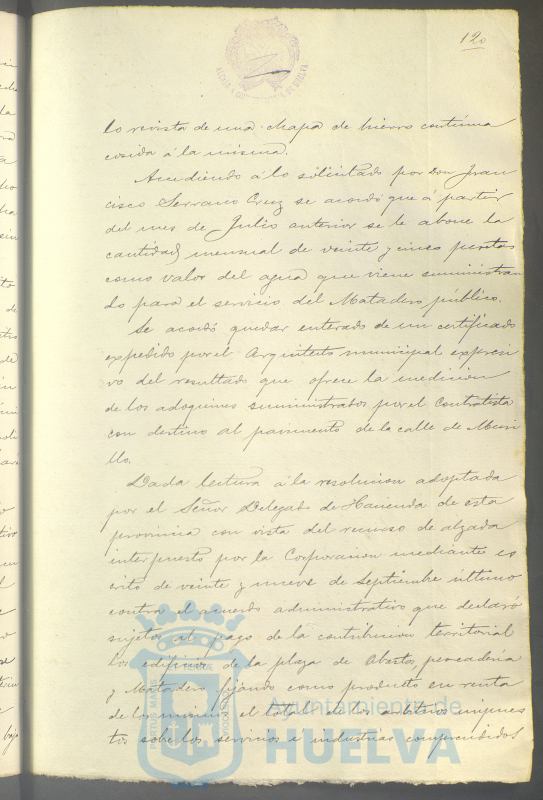 120
lo revista de una chapa de hierro contínua
cosida á la misma.
Accediendo á lo solicitado por Don Fran
cisco Serrano Cruz se acordó que á partir
del mes de Julio anterior se le abone la
cantidad mensual de veinte y cinco pesetas
como valor del agua que viene suministran
do para el servicio del Matadero público.
Se acordó quedar enterado de un certificado
expedido por el Arquitecto municipal expresi
vo del resultado que ofrece la medicion
de los adoquines suministrados por el Contratista
con destino al pavimento de la calle de
llo.
Dada lectura á la resolucion adoptada
por el Señor Delegado de Hacienda de esta
provincia con vista del recurso de alzada
interpuesto por la Corporacion mediante es
crito de veinte y nueve de Septiembre último
contra el acuerdo administrativo que declaró
sujetos al pago de la contribucion territorial
los edificios de la plaza de Abastos, pescadería
y Matadero fijando como producto en renta
de los mismos el total de los arbitrios impues
tos sobre los servicios é industrias comprendidos
Ayuntamiento de
HUELVA